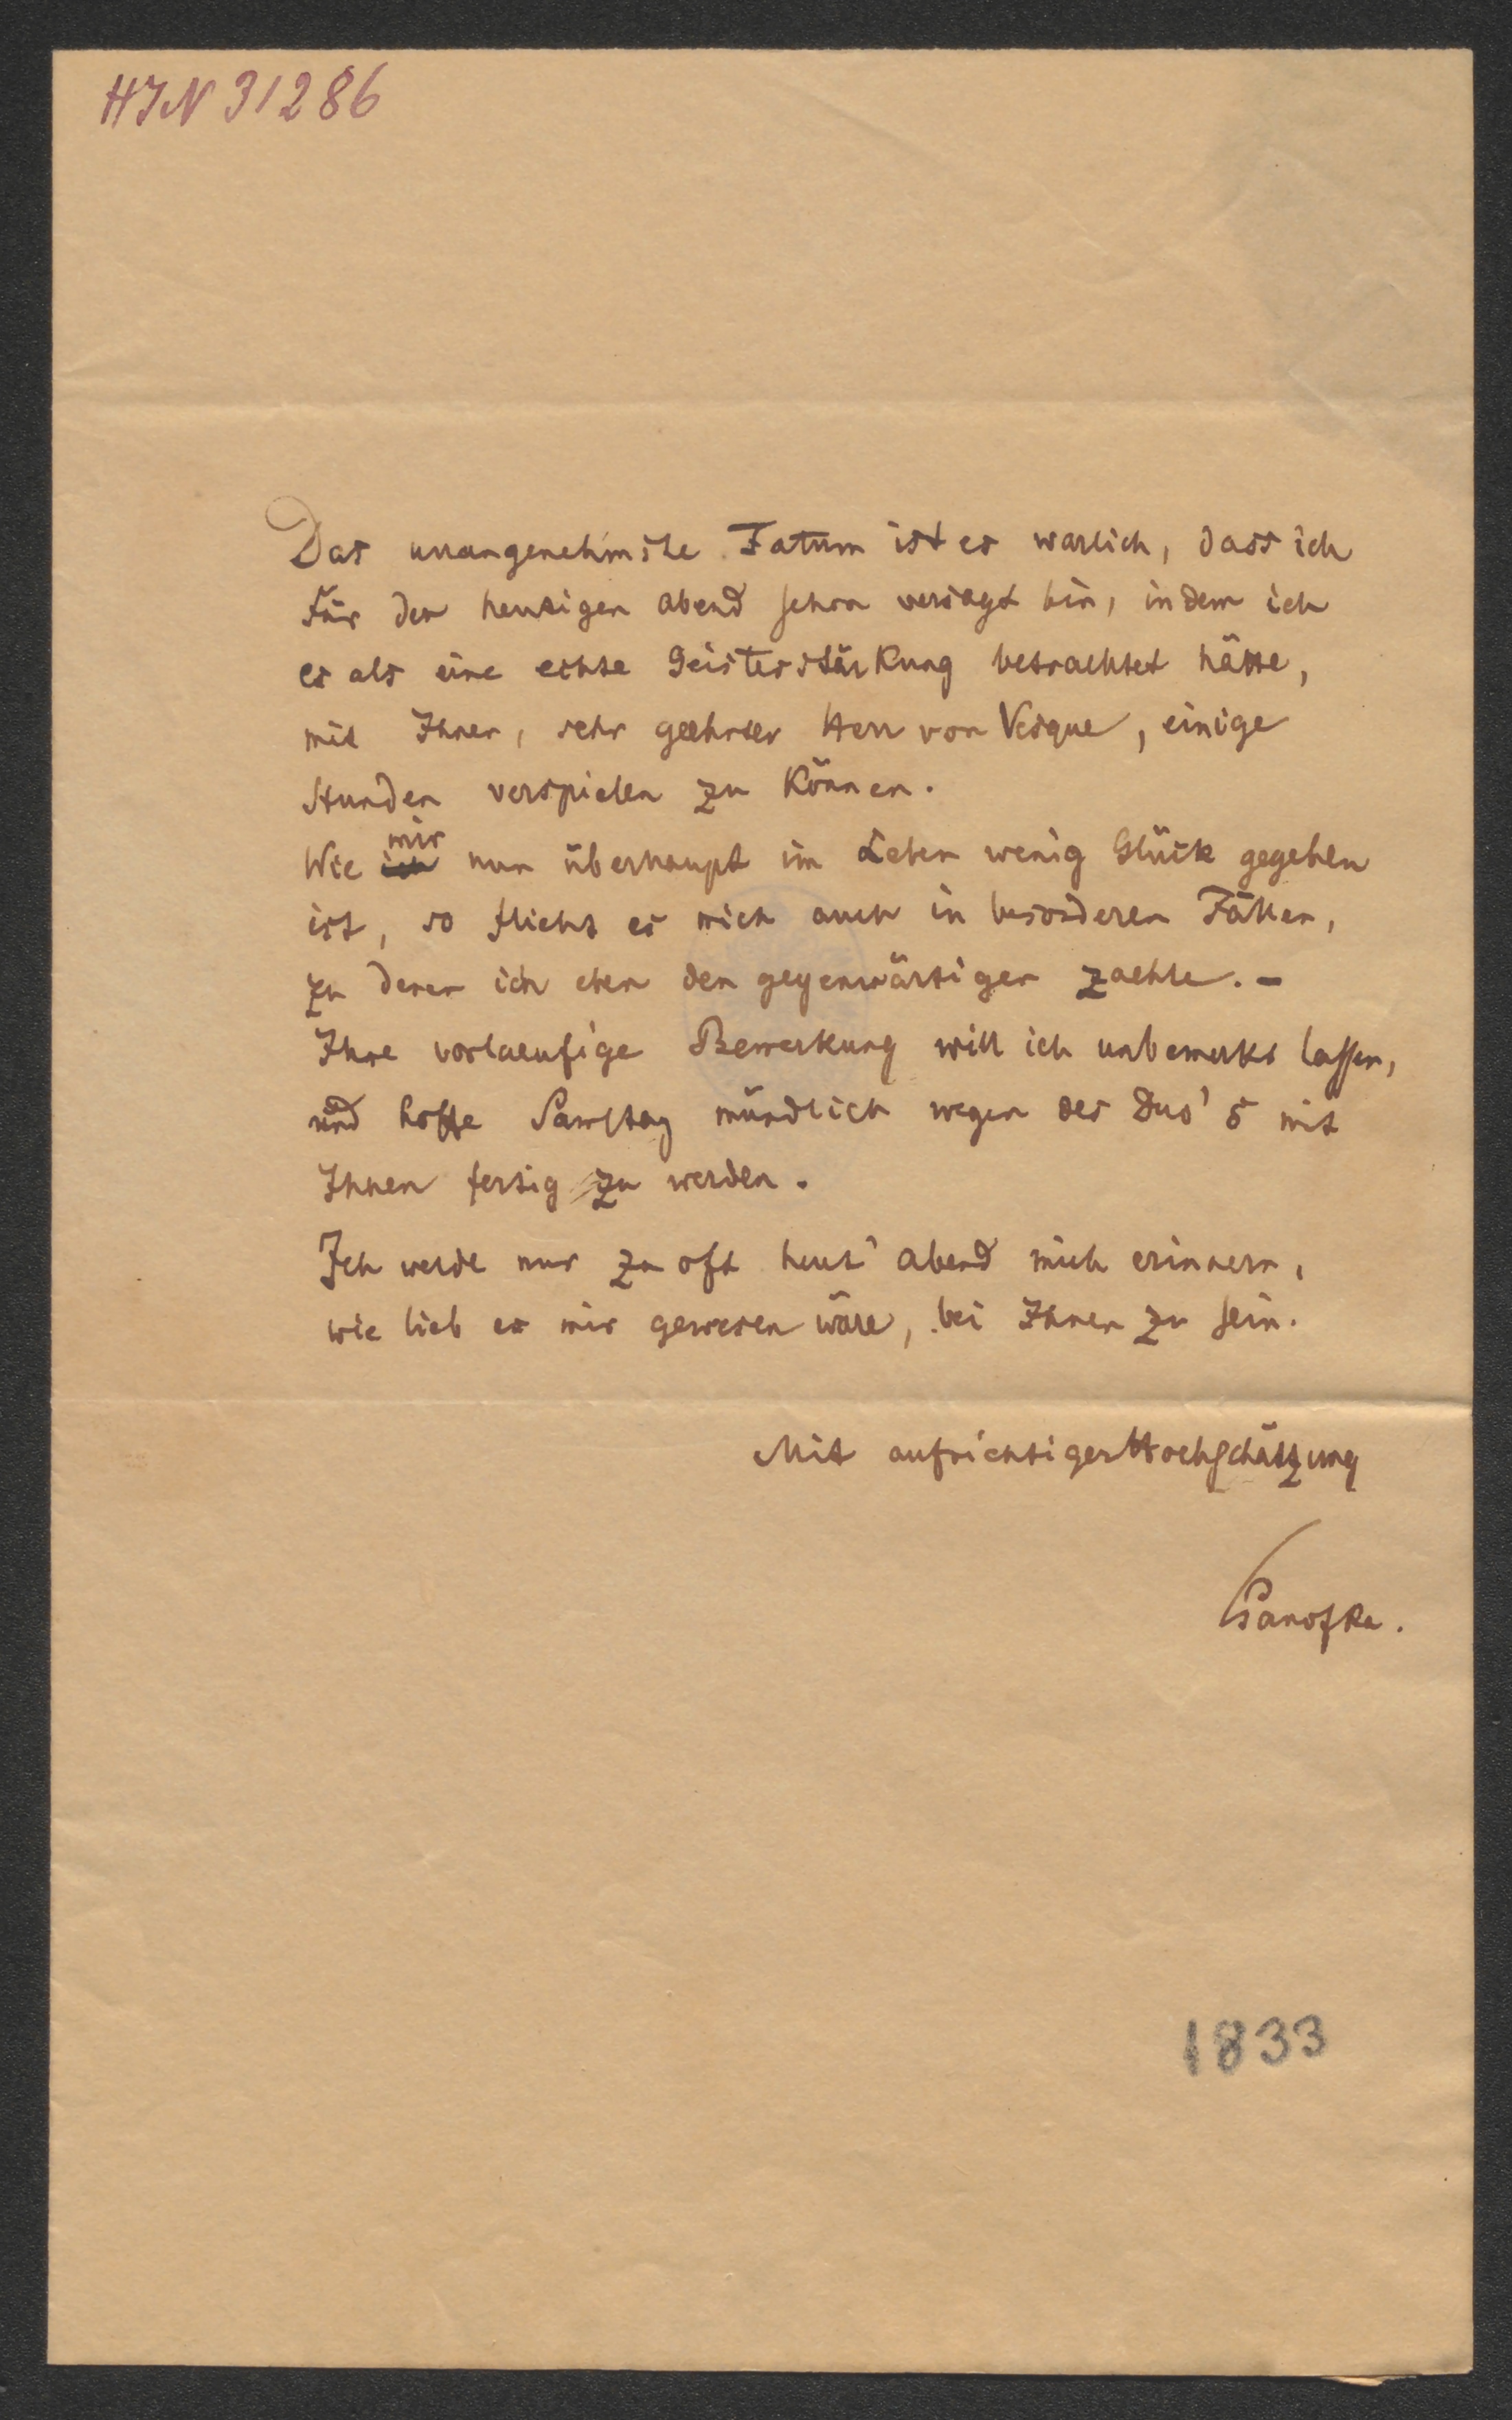 HIN 31286
Das unangenehmste Fatum ist es warlich, dass ich
für den heutigen Abend schon versagt bin, indem ich
es als eine echte Geisterstärkung betrachtet hätte,
mit Ihnen, sehr geehrter Herr von Vesque, einige
Stunden verspielen zu können.
Wie ich mir nun überhaupt im Leben wenig Glück gegeben
ist, so flieht es mich auch in besonderen Fällen,
zu denen ich eben den gegenwärtigen zaehle. –
Ihre vorlaeufige Bemerkung will ich unbemerkt lassen,
und hoffe Samstag mündlich wegen des Duo's mit
Ihnen fertig zu werden.
Ich werde nur zu oft heut' Abend mich erinnern,
wie lieb es mir gewesen wäre, bei Ihnen zu sein.
Mit aufrichtiger Hochschätzung
Panofka.
1833